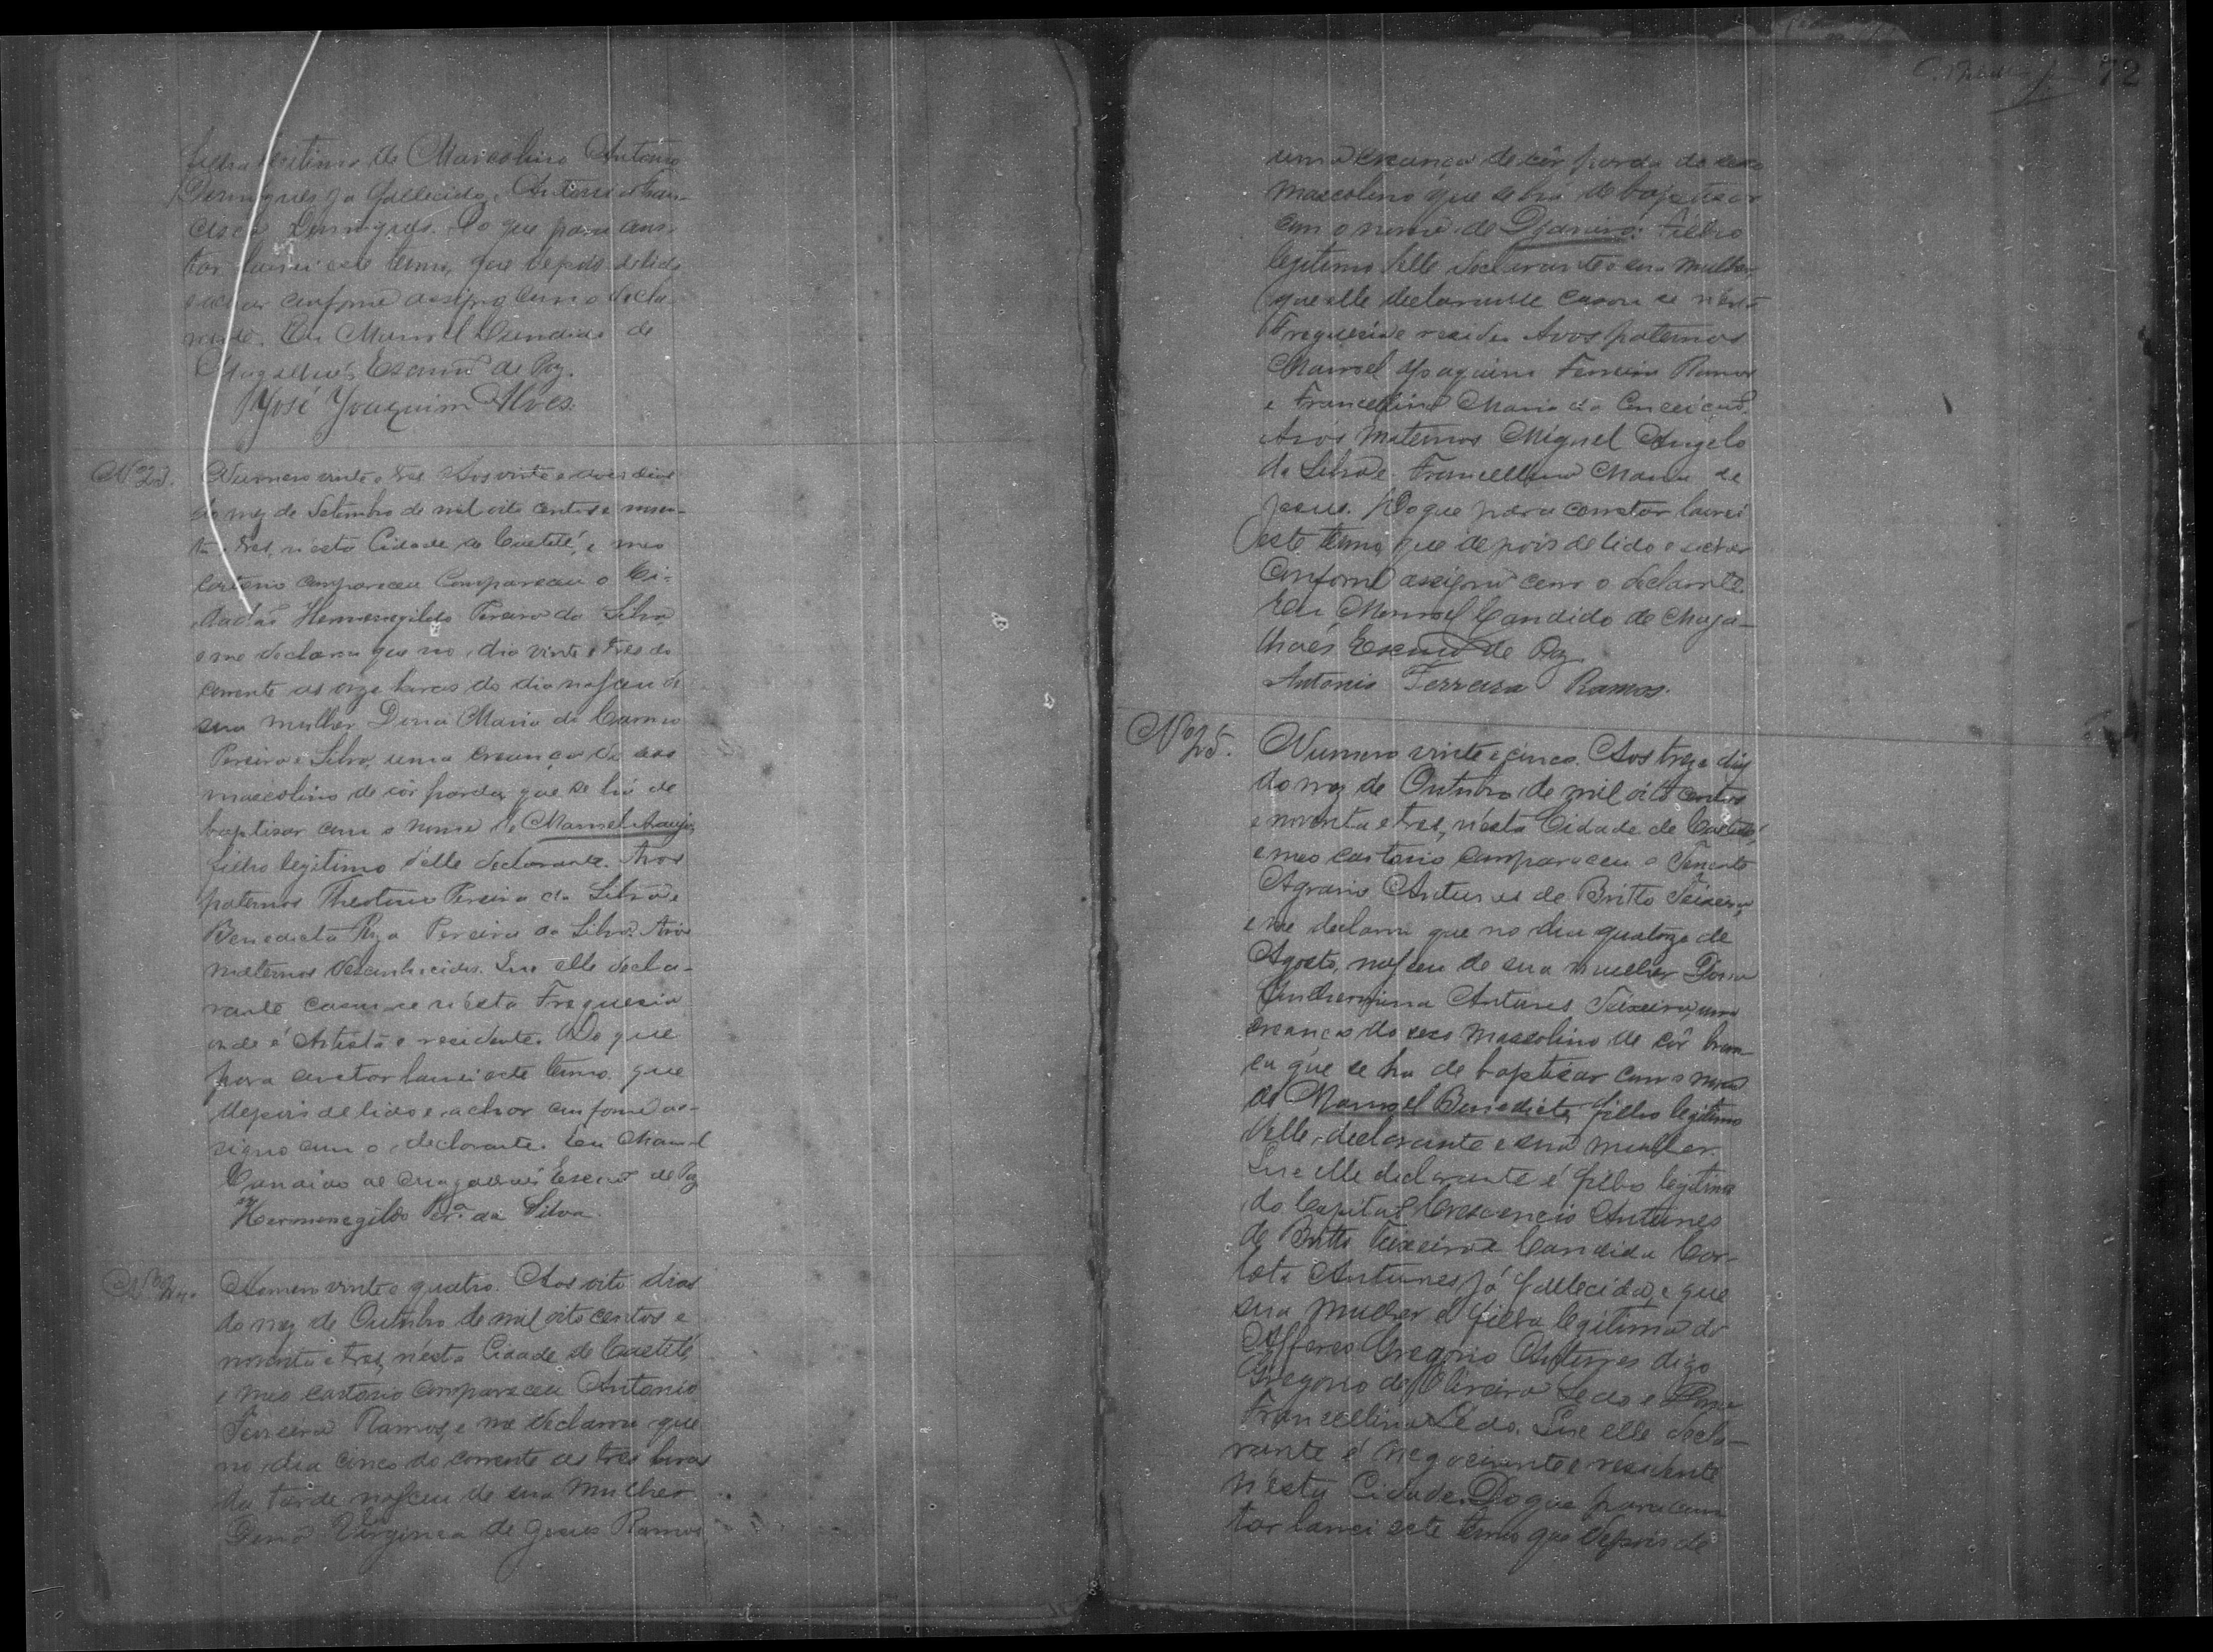 filha legitima de Marcolino Antonio
Domingues já fallecido, Antonia Fran-
cisca Domingues. Do que para cons-
tar lavrei este termo, que depois de lido
e achar conforme assigno com o decla-
rante. Eu Manoel Candido de
Magalhães Escrivão de Paz.
José Joaquim Alves.
Nº 23.
Numero vinte e tres Aos vinte e dias
do mez de Setembro de mil oito centos e noven-
ta e tres, n'esta Cidade de Caetité, e meo
cartorio compareceu Compareceu o Ci-
dadão Hermenegildo Pereira da Silva
e me declarou que no dia vinte e tres do
corrente as onze horas do dia nasceu de
sua mulher Dona Maria do Carmo
Pereira e Silva, uma creança de sexo
mascolino de côr parda, que se há de
baptisar com o nome de Manoel Araujo,
filho legitimo d'elle declarante. Avos
paternos Theotonio Pereira da Silva e
Benedicta Roza Pereira da Silva. Avós
maternos desconhecidos. Que elle decla-
rante casou-se n'esta Freguesia
onde é Artista e residente. Do que
para constar lavrei este termo que
depois de lido e achar conforme as-
signo com o declarante. Eu Manoel
Candido de Magalhães Escrivão de Paz
Hermenegildo Perª da Silva.
Nº 24.
Numero vinte e quatro. Aos oito dias
do mez de Outubro de mil oito centos e
noventa e tres, n'esta Cidade de Caetité,
e meo cartorio compareceu Antonio
Ferreira Ramos, e me declarou que
no dia cinco do corrente as tres horas
da tarde nasceu de sua mulher
Dona Virginia de Jesus Ramos
72
uma creança de côr parda do sexo
mascolino que se há de baptisar
com o nome de Djaniro. Filho
legitimo d'elle declarante e sua mulher
que elle declarante casou se n'esta
Freguesia e reside. Avos paternos
Manoel Joaquim Ferreira Ramos
e Francellina Maria da Conceição.
Avós maternos Miguel Angelo
da Silva e Francellina Maria de
Jesus. Do que para constar lavrei
este termo que depois de lido e achar
conforme assigno com o declarante.
Eu, Manoel Candido de Maga-
lhães Escrivão de Paz
Antonio Ferreira Ramos.
Nº 25.
Numero vinte e cinco. Aos treze dias
do mez de Outubro de mil oito centos
e noventa e tres, n'esta Cidade de Caetité,
e meo cartorio compareceu o Tenente
Antunes de Britto Teixeira,
e me declarou que no dia quatorze de
Agosto, nasceu de sua mulher Dona
Guilhermina Antunes Teixeira, uma
creança do sexo mascolino de côr bran-
ca que se ha de baptisar com o nome
de Manoel Benedicto, filho legitimo
d'elle declarante e sua mulher.
Que elle declarante é filho legitimo
do Capitão Crescencio Antunes
de Britto Teixeira e Candida Car-
lota Antunes já fallecida, e que
sua mulher é filha legitima do
Alferes Gregorio Antunes digo
Gregorio de Oliveira Ledo e Dona
Francellina Ledo. Que elle decla-
rante é negociante e residente
n'esta Cidade. Do que para cons-
tar lavrei este termo que depois de